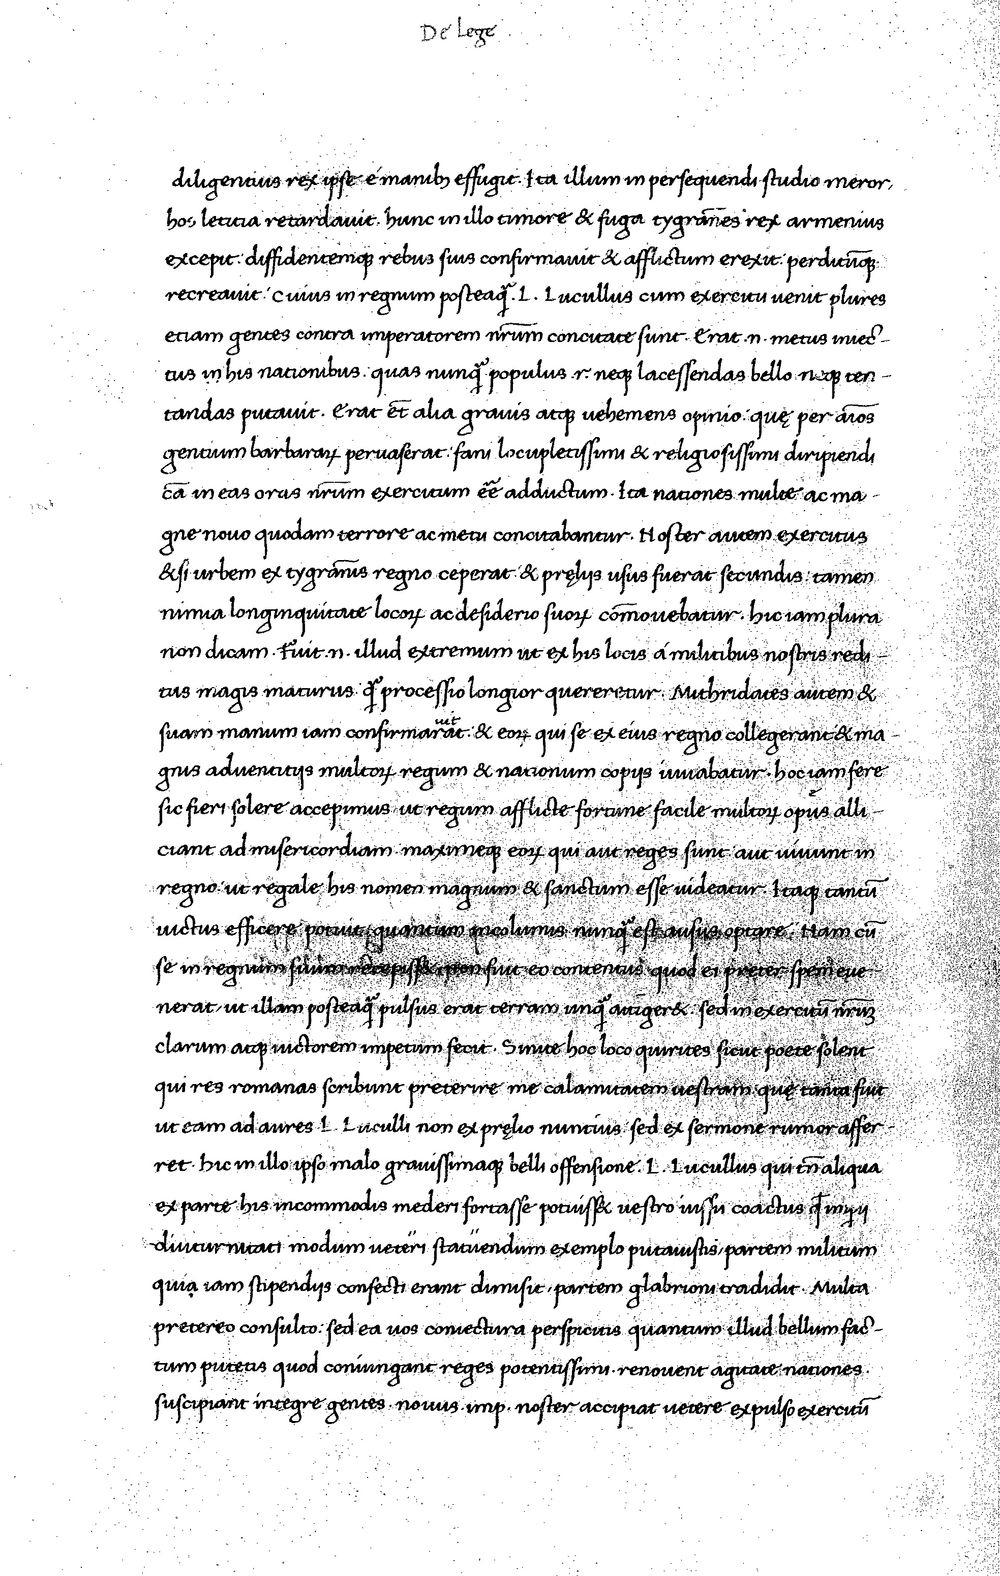 De lege
diligentius rex ipse e manibꝫ effugit. Ita illum in persequendi studio meror,
hos leticia retardauit. hunc in illo timore & fuga tygranēs rex armenius
excepit: diffidentemqꝫ rebus suis confirmauit & afflictum erexit: perditūqꝫ
recreauit: Cuius in regnum posteaq̄. L. Lucullus cum exercitu uenit plures
etiam gentes contra imperatorem nr̄um concitate sunt. Erat .n. metus iniec-
tus in his nationibus: quas nunq̄ populus .r. neqꝫ lacessendas bello neqꝫ ten-
tandas putauit. Erat et̄ alia grauis atqꝫ uehemens opinio: quę per aīos
gentium barbaraꝝ peruaserat: fani locupletissimi & religiosissimi diripiendi
cā in eas oras nr̄um exercitum eē adductum. Ita nationes multe ac ma-
gne nouo quodam terrore ac metu concitabantur. Noster autem exercitus
&si urbem ex tygranis regno ceperat & pręlijs usus fuerat secundis: tamen
nimia longinquitate locoꝝ ac desiderio suoꝝ cōmouebatur. hic iam plura
non dicam. Fuit .n. illud extremum ut ex his locis a militibus nostris redi-
tus magis maturus q̄ processio longior quereretur. Mithridates autem &
suam manum iam confirmarat: & eoꝝ qui se ex eius regno collegerant & ma-
gnis aduenticijs multoꝝ regum & nationum copijs iuuabatur. hoc iam fere
sic fieri solere accepimus ut regum afflicte fortune facile multoꝝ opes alli-
ciant ad misericordiam maximeqꝫ eoꝝ qui aut reges sunt aut uiuunt in
regno: ut regale his nomen magnum & sanctum esse uideatur. Itaqꝫ tantū
uictus efficere potuit, quantum incolumis nunq̄ est ausus optare. Nam cū
se in regnum suum recepisset non fuit eo contentus quod ei preter spem eue-
nerat, ut illam posteaq̄ pulsus erat terram unq̄ attiger&: sed in exercitū nr̄m
clarum atqꝫ uictorem impetum fecit. Sinite hoc loco quirites sicut poete solent
qui res romanas scribunt preterire me calamitatem uestram quę tanta fuit
ut eam ad aures L. Luculli non ex pręlio nuntius sed ex sermone rumor affer-
ret. hic in illo ipso malo grauissimaqꝫ belli offensione. L. Lucullus qui tn̄ aliqua
ex parte his incommodis mederi fortasse potuiss& uestro iussu coactus imꝑij
diuturnitati modum ueteri statuendum exemplo putauistis, partem militum
quia iam stipendijs confecti erant dimisit, partem glabrioni tradidit. Multa
pretereo consulto: sed ea uos coniectura perspicitis quantum illud bellum fac-
tum putetis quod coniungant reges potentissimi. renouent agitate nationes.
suscipiant integre gentes. nouus imp. noster accipiat uetere expulso exercitū